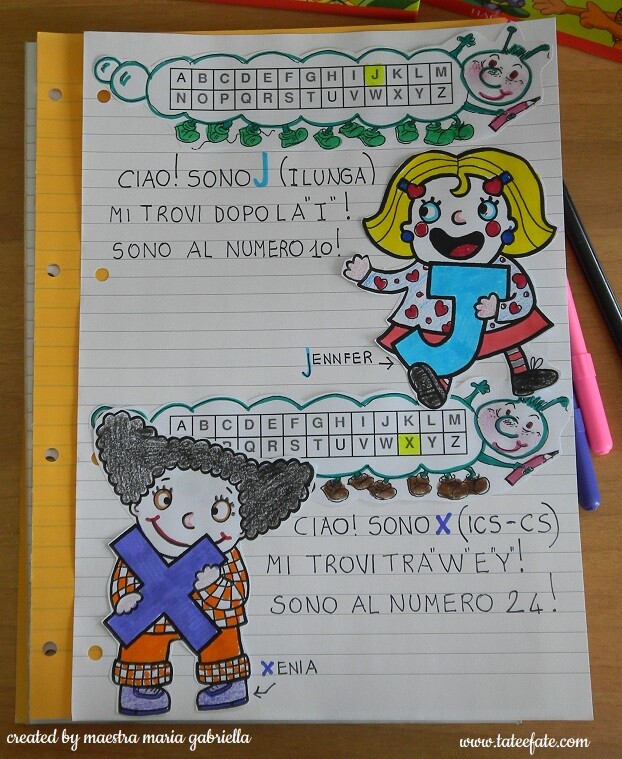 A B C D E F G H I J K L M
N O P Q R S T U V W X Y Z
CIAO! SONO J (I LUNGA)
MI TROVI DOPO LA "I"!
SONO AL NUMERO 10!
JENNFER →
A B C D E F G H I J K L M
Q R S T U V W X Y Z
CIAO! SONO X (ICS-CS)
MI TROVI TRA "W" E "Y"!
SONO AL NUMERO 24!
XENIA
created by maestra maria gabriella
www.tateefate.com